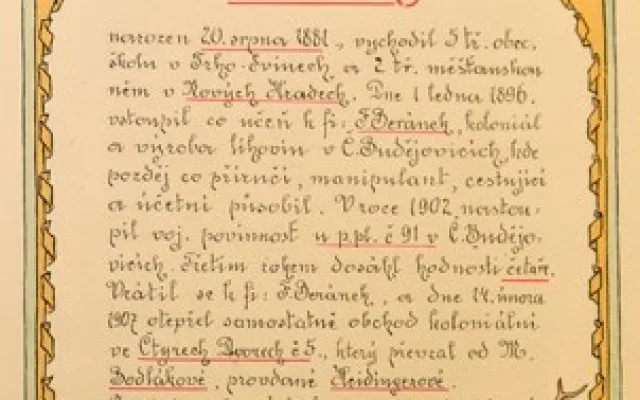 narozen 20. srpna 1881., vychodil 5 tř. obec.
školu v Trho-Svinech a 2 tř. měšťanskou
ném v Nových Hradech. Dne 1 ledna 1896.
vstoupil co učeň k fi: F. Beránek, koloniál
a výroba lihovin v Č. Budějovicích, kde
později co příručí, manipulant, cestující
a účetní působil. V roce 1902, nastou-
pil voj. povinnost u p. pl. č 91 v Č. Budějo-
vicích. Třetím rokem dosáhl hodnosti četař.
Vrátil se k fi: F. Beránek, a dne 14. února
1907 otevřel samostatně obchod koloniální
ve Čtyrech Dvorech č 5., který převzal od M.
Bodlákové, provdané Heidingerové.